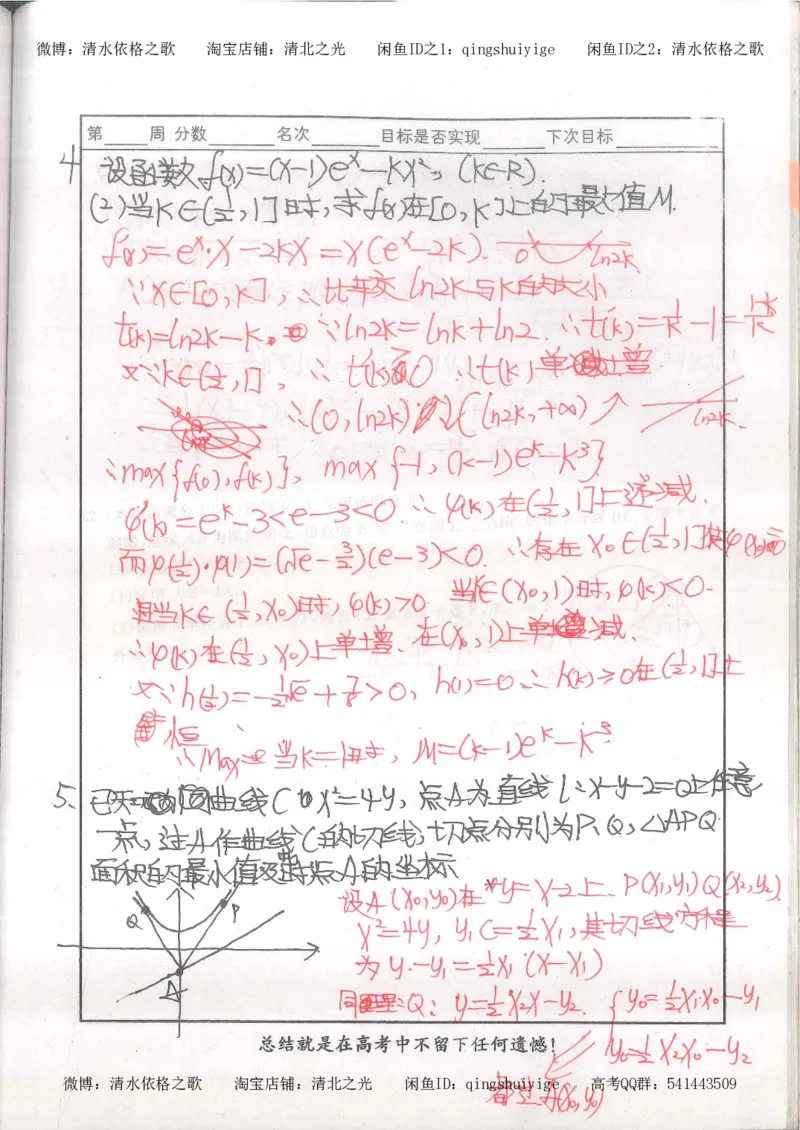 微博：清水依格之歌 淘宝店铺：清北之光 闲鱼ID之1：qingshuiyige 闲鱼ID之2：清水依格之歌
第 周 分数 名次 目标是否实现 下次目标
4 设函数f(x)=(x-1)eˣ-kx², (k∈R).
(2)当k∈(½,1]时,求f(x)在[0,k]上的最大值M.
f'(x)=eˣ·x-2kx=x(eˣ-2k). 0 ln2k
∵x∈[0,k], ∴比较ln2k与k的大小
t(k)=ln2k-k. ∵ln2k=lnk+ln2. ∴t'(k)=1/k-1=(1-k)/k
又∵k∈(½,1], ∴t'(k)≥0 ∴t(k)单增
∴(0,ln2k)↓ (ln2k,+∞)↗ ln2k.
∴max{f(0),f(k)}, max{-1,(k-1)eᵏ-k³}
φ(k)=eᵏ-3<e-3<0 ∴φ(k)在(½,1]上递减.
而φ(½)·φ(1)=(√e-3/2)(e-3)<0. ∴存在x₀∈(½,1]使φ(x₀)=0
且当k∈(½,x₀)时,φ(k)>0, 当k∈(x₀,1)时,φ(k)<0.
∴φ(k)在(½,x₀)上单增. 在(x₀,1)上单减.
又∵h(½)=-½√e+7/8>0, h(1)=0 ∴h(k)≥0在(½,1]上
恒
∴Max 当k=1时, M=(k-1)eᵏ-k³.
5、已知 曲线C为x²=4y,点A为直线l:x-y-2=0上任意
一点,过A作曲线C的切线,切点分别为P、Q,△APQ
面积的最小值及此时点A的坐标
Q P A
设A(x₀,y₀)在y=x-2上. P(x₁,y₁)Q(x₂,y₂).
x²=4y, y'=½x₁,其切线方程
为y-y₁=½x₁(x-x₁)
同理:Q: y=½x₂x-y₂. {y₀=½x₁x₀-y₁
y₀=½x₂x₀-y₂
总结就是在高考中不留下任何遗憾！
都过A(x₀,y₀)
微博：清水依格之歌 淘宝店铺：清北之光 闲鱼ID：qingshuiyige 高考QQ群：541443509